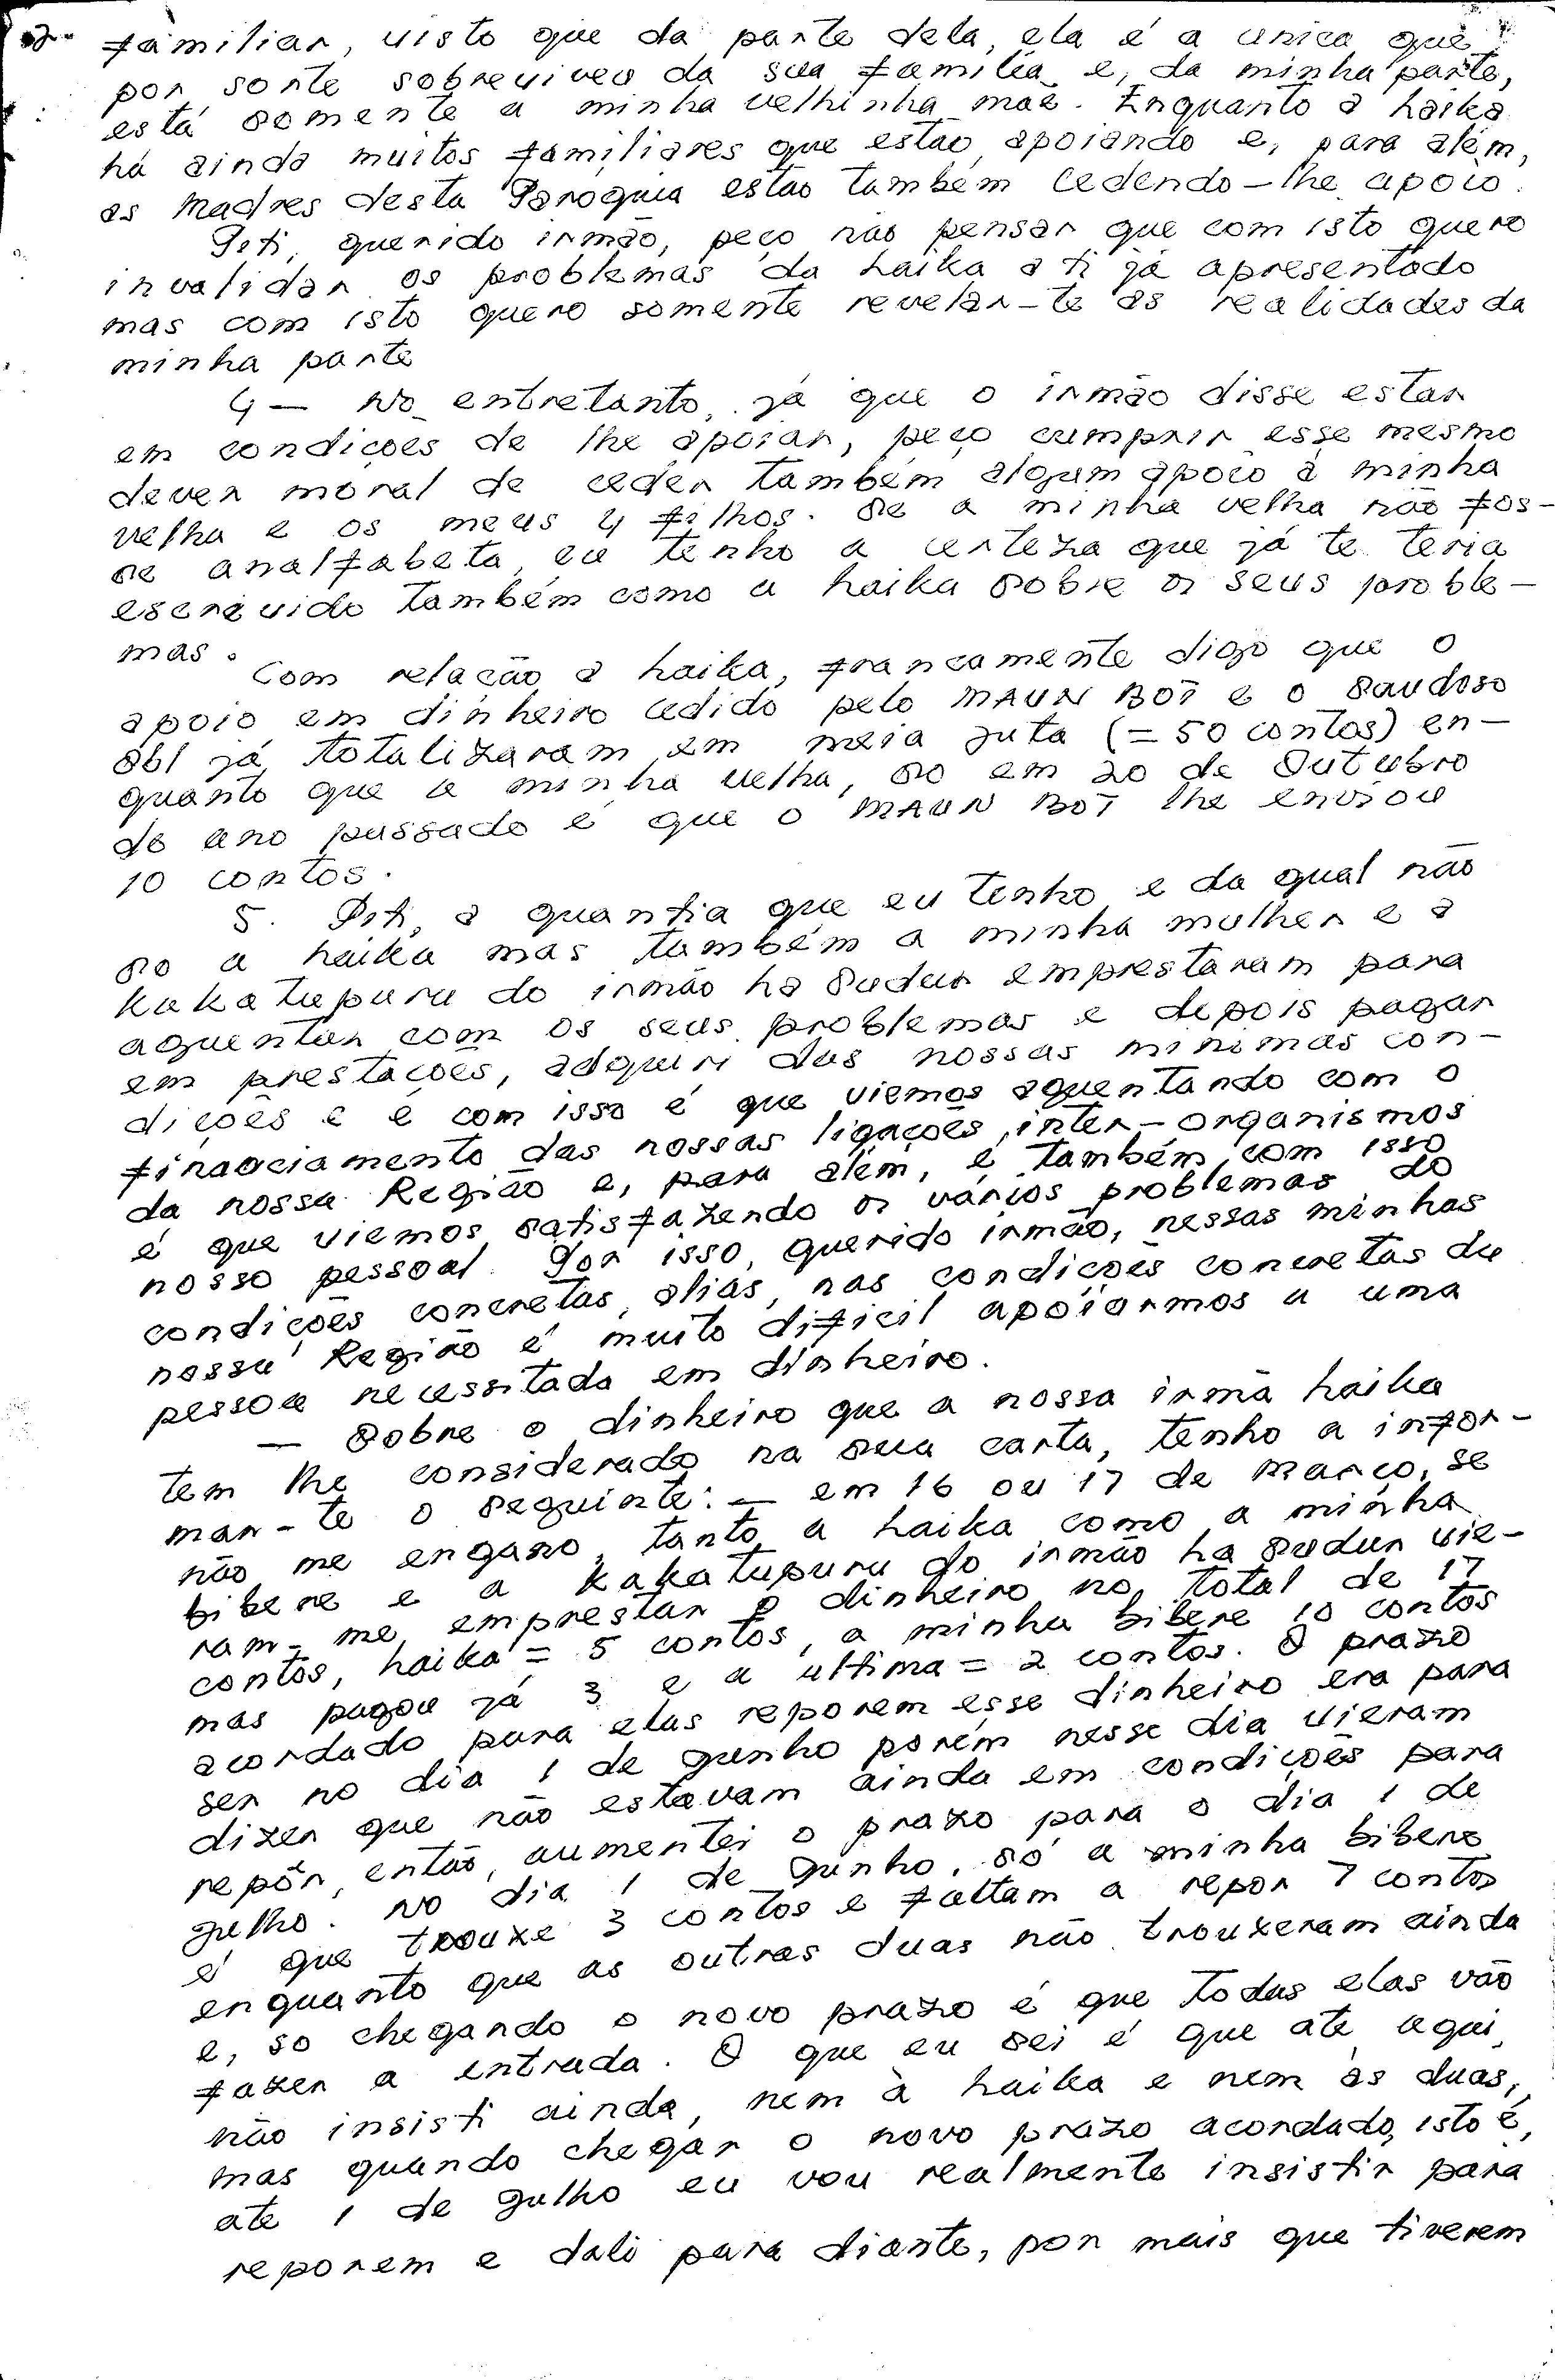 2-
familiar, visto que da parte dela, ela é a unica que
por sorte sobreviveu da sua familia e, da minha parte,
está somente a minha velhinha mãe. Enquanto a haika
há ainda muitos familiares que estão apoiando e, para além,
as Madres desta Paróquia estão também cedendo-lhe apoio.
Piti, querido irmão, peço não pensar que com isto quero
invalidar os problemas da haika a ti já apresentado
mas com isto quero somente revelar-te as realidades da
minha parte
4 - No entretanto, já que o irmão disse estar
em condições de lhe apoiar, peço cumprir esse mesmo
dever moral de ceder também algum apoio à minha
velha e os meus 4 filhos. Se a minha velha não fos-
se analfabeta, eu tenho a certeza que já te teria
escrevido também como a haika sobre os seus proble-
mas.
Com relação a haika, francamente digo que o
apoio em dinheiro cedido pelo MAUN BOT e o Saudoso
Obl já totalizaram em meia juta (= 50 contos) en-
quanto que a minha velha, so em 20 de Outubro
do ano passado é que o MAUN BOT lhe enviou
10 contos.
5. Piti, a quantia que eu tenho e da qual não
so a haika mas também a minha mulher e a
kakatupuru do irmão ha Sudur emprestaram para
aguentar com os seus problemas e depois pagar
em prestações, adquiri das nossas minimas con-
dições e é com isso é que viemos aguentando com o
financiamento das nossas ligações, inter-organismos
da nossa Região e, para além, é também com isso
é que viemos satisfazendo os vários problemas do
nosso pessoal. Por isso, querido irmão, nessas minhas
condições concretas, alias, nas condições concretas da
nossa Região é muito dificil apoiarmos a uma
pessoa necessitada em dinheiro.
- Sobre o dinheiro que a nossa irmã haika
tem lhe considerado na sua carta, tenho a infor-
mar-te o seguinte: - em 16 ou 17 de Março, se
não me engano, tanto a haika como a minha
bibere e a kakatupuru do irmão ha Sudur vie-
ram-me emprestar o dinheiro no total de 17
contos, haika = 5 contos, a minha bibere 10 contos
mas pagou já 3 e a ultima = 2 contos. O prazo
acordado para elas reporem esse dinheiro era para
ser no dia 1 de Junho porém nesse dia vieram
dizer que não estavam ainda em condições para
repôr, então, aumentei o prazo para o dia 1 de
Julho. No dia 1 de Junho, só a minha bibere
é que trouxe 3 contos e faltam a repor 7 contos
enquanto que as outras duas não trouxeram ainda
e, so chegando o novo prazo é que todas elas vão
fazer a entrada. O que eu sei é que ate aqui,
não insisti ainda, nem à haika e nem às duas,
mas quando chegar o novo prazo acordado, isto é,
ate 1 de Julho eu vou realmente insistir para
reporem e dali para diante, por mais que tiverem